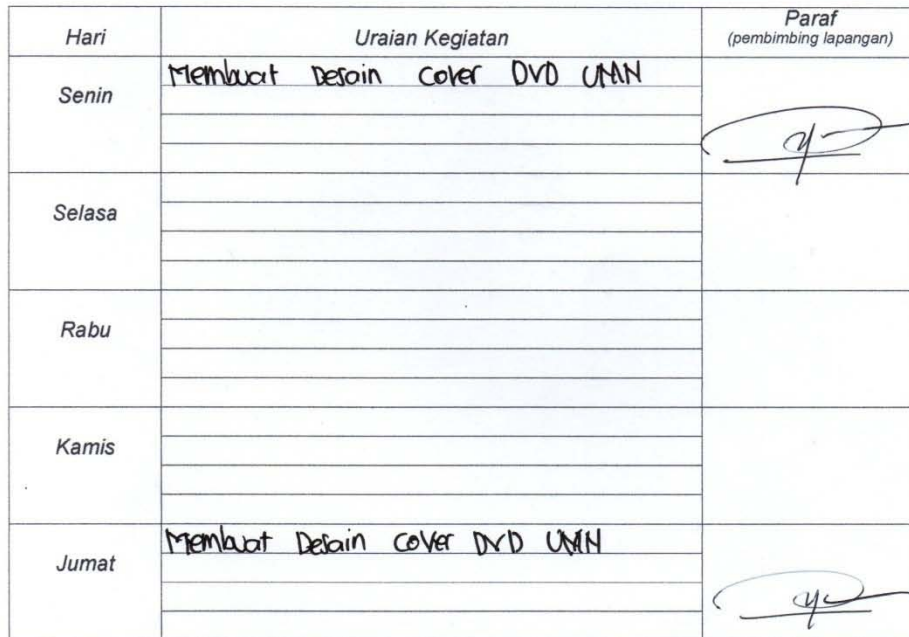 Hari Uraian Kegiatan Paraf
(pembimbing lapangan)
Senin Membuat Desain cover DVD UMN
Selasa
Rabu
Kamis
Jumat Membuat Desain cover DVD UMN